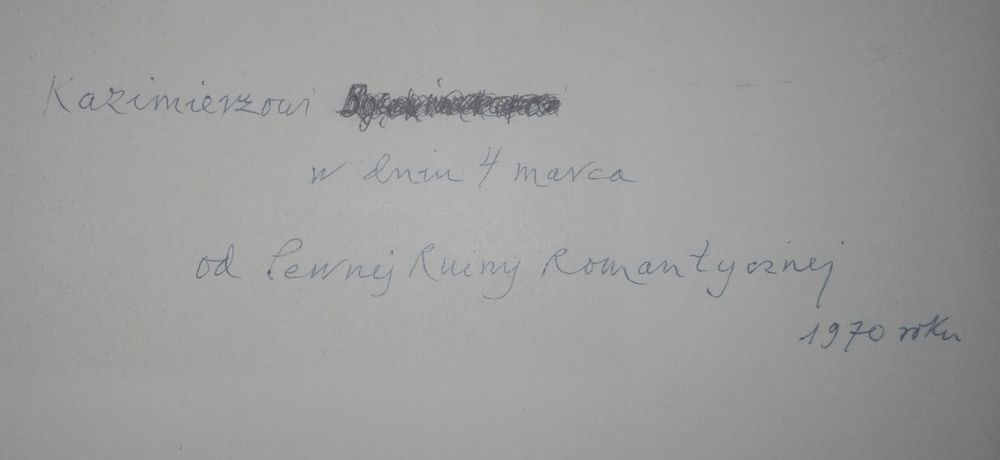 Kazimierzowi
w dniu 4 marca
od Pewnej Ruiny Romantycznej
1970 roku